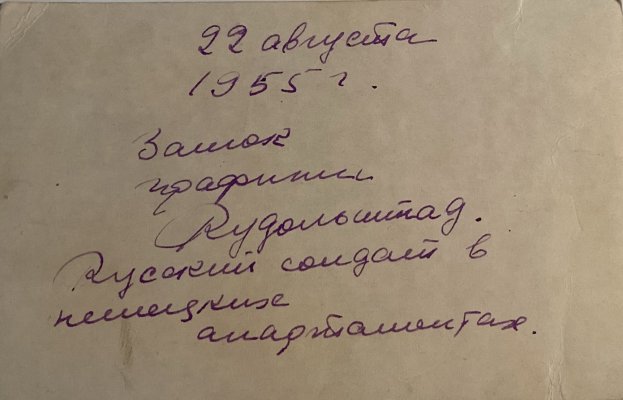 22 августа
1955 г.
Замок
графини
Рудольштад.
Русский солдат в
немецких
апартаментах.